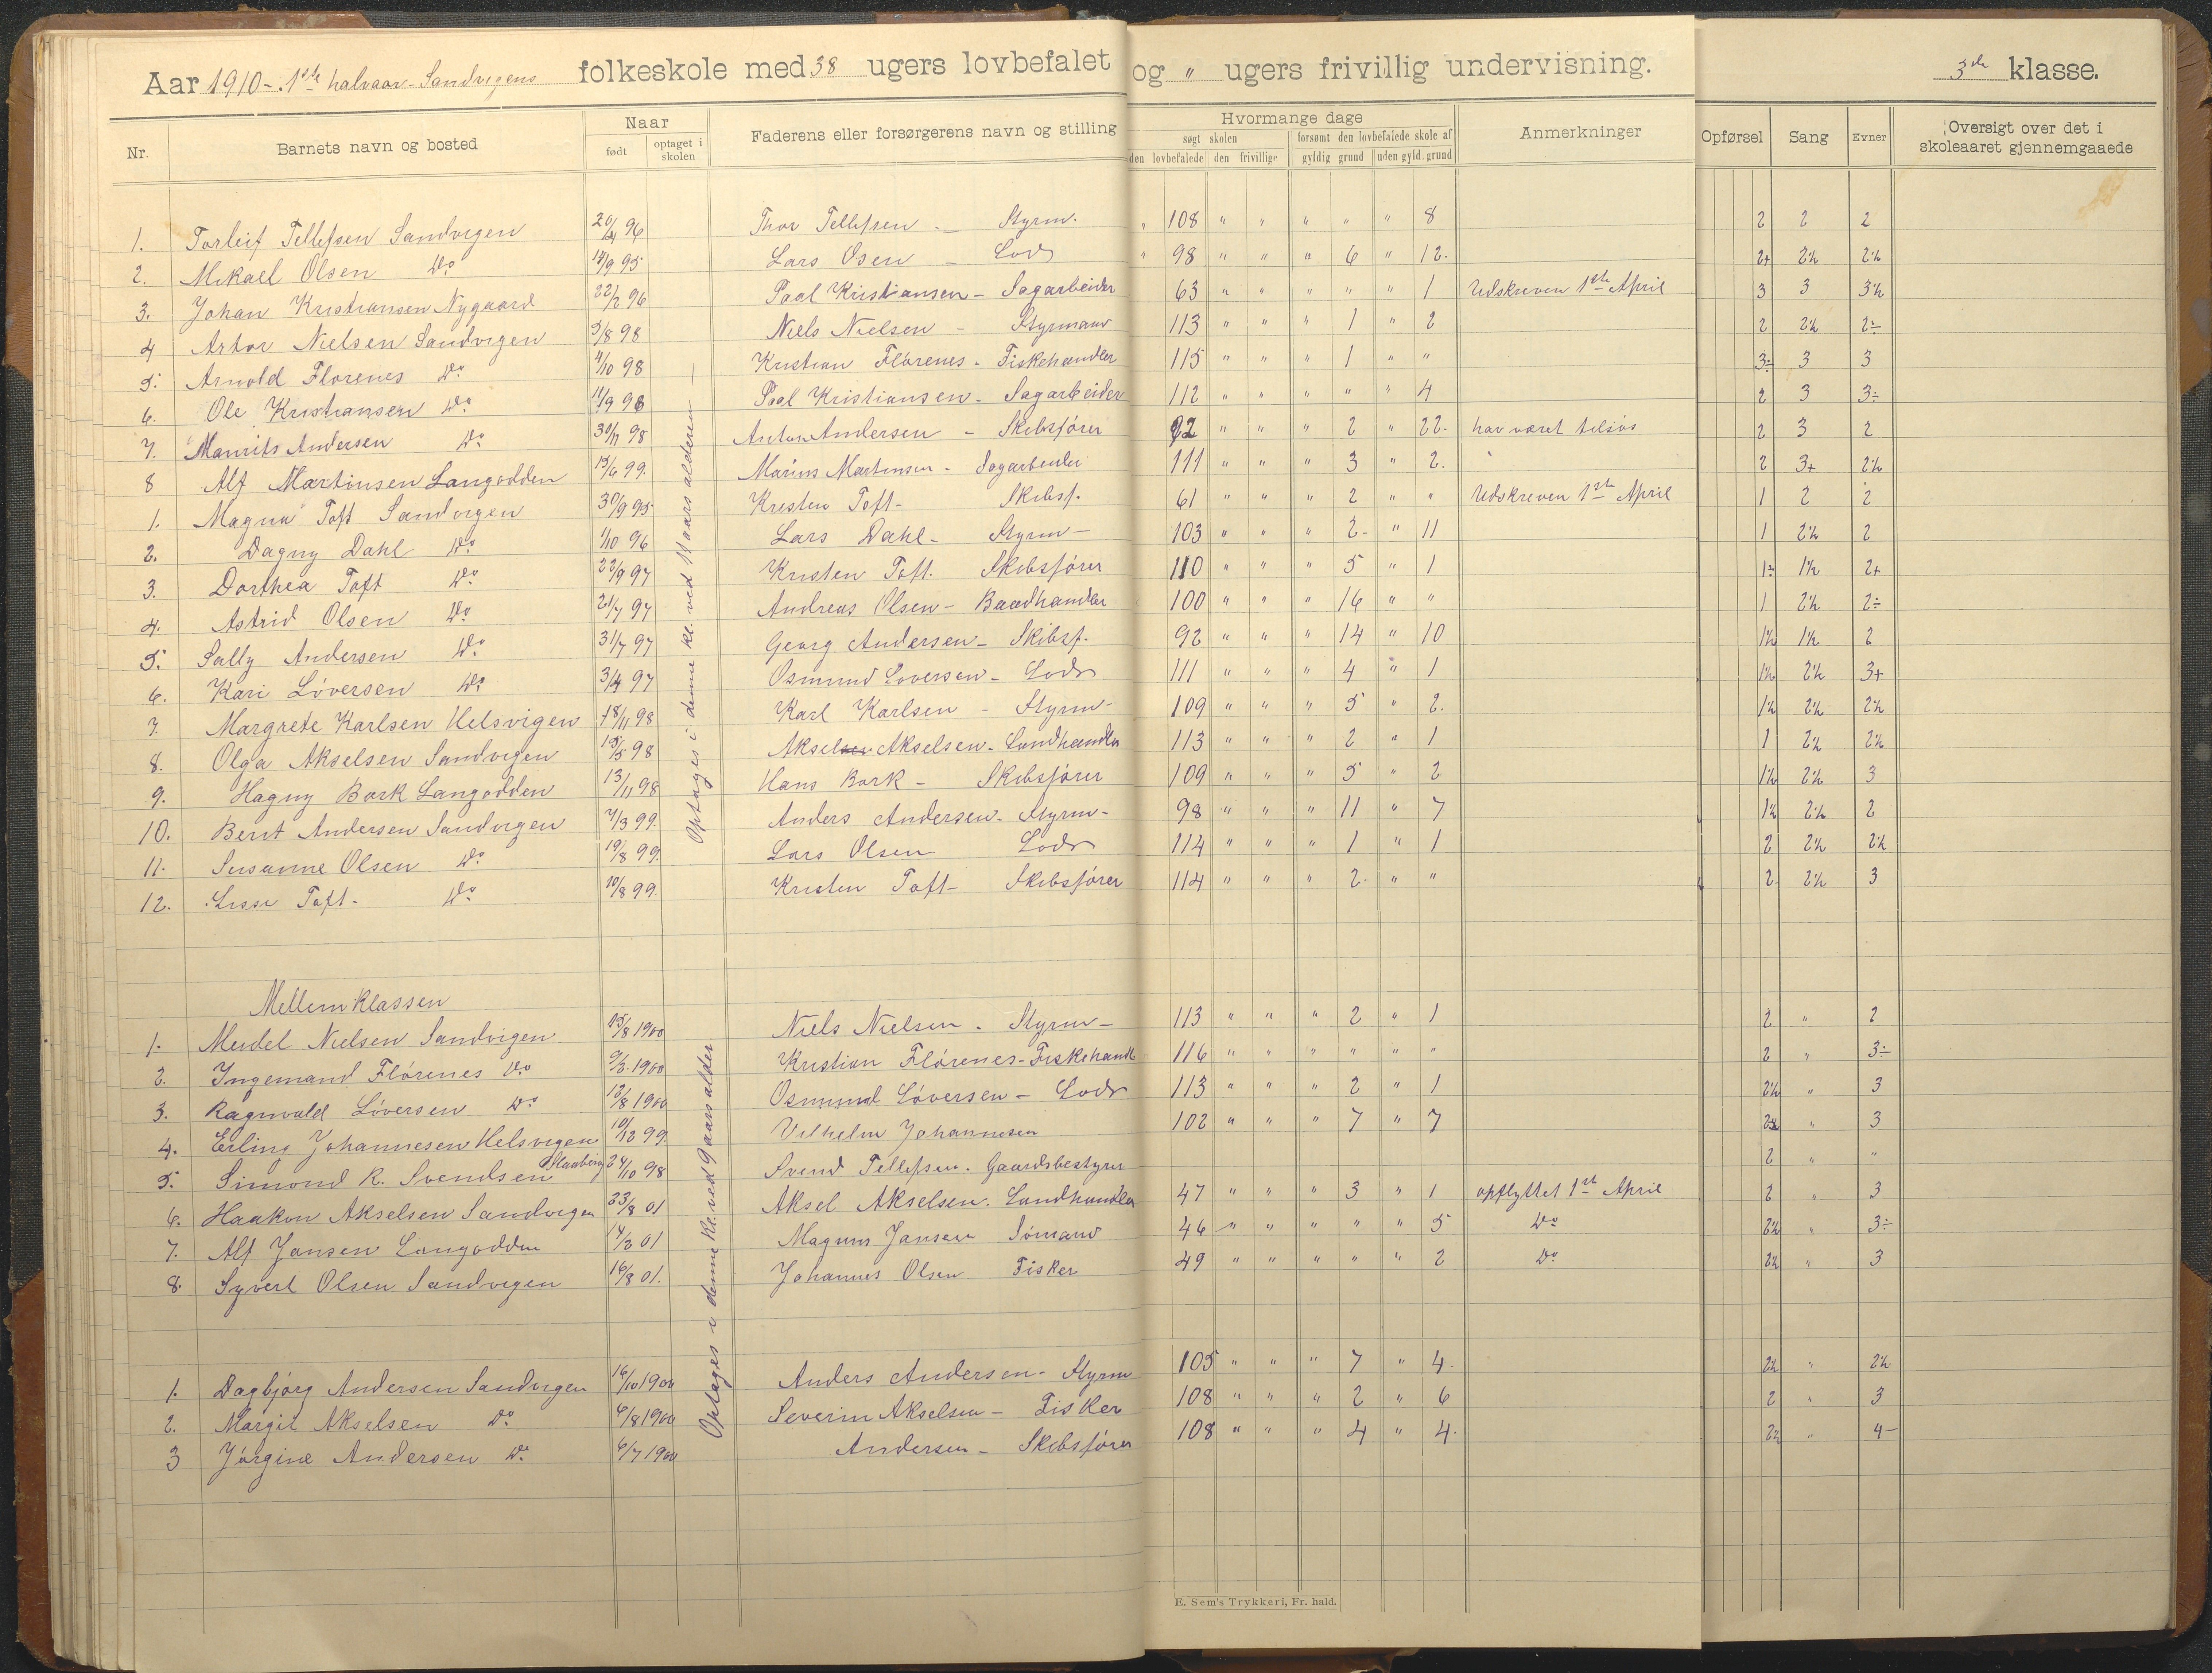 Aar 1910 - 1ste halvaar - Sandvigens folkeskole med 38 ugers lovbefalet og " ugers frivillig undervisning. 3die klasse.
Nr. Barnets navn og bosted Naar født optaget i skolen Faderens eller forsørgerens navn og stilling Hvormange dage søgt skolen den lovbefalede den frivillige forsømt den lovbefalede skole af gyldig grund uden gyld. grund Anmerkninger Opførsel Sang Evner Oversigt over det i skoleaaret gjennemgaaede
1. Torleif Tellefsen Sandvigen 20/4 96 Thor Tellefsen - Styrm. " 108 " " " " " 8 2 2 2
2. Mikael Olsen Do 14/9 95 Lars Osen - Lods " 98 " " " 6 " 12. 2+ 2½ 2½
3. Johan Kristiansen Nygaard 22/2 96 Paal Kristiansen - Sagarbeider 63 " " " " " 1 Udskreven 1ste April 3 3 3½
4 Artor Nielsen Sandvigen 3/8 98 Niels Nielsen - Styrmand 113 " " " 1 " 2 2 2½ 2÷
5. Arnold Florenes Do 4/10 98 Kristian Flørenes - Fiskehandler 115 " " " 1 " " 3÷ 3 3
6. Ole Kristiansen Do 11/9 98 Paal Kristiansen - Sagarbeider 112 " " " " " 4 2 3 3÷
7. Maurits Andersen Do 30/11 98 Anton Andersen - Skibsfører 92 " " " 2 " 22. har været tilsjøs 2 3 2
8 Alf Martinsen Langodden 15/6 99. Marius Martinsen - Sagarbeider 111 " " " 3 " 2. 2 3+ 2½
1. Magna Toft Sandvigen 30/9 95 Kristen Toft - Skibsf. 61 " " " 2 " " Udskreven 1ste April 1 2 2
2. Dagny Dahl Do 1/10 96 Lars Dahl - Styrm - 103 " " " 2 " 11 1 2½ 2
3. Dorthea Toft Do 22/9 97 Kristen Toft. Skibsfører 110 " " " 5 " 1 1÷ 1½ 2+
4. Astrid Olsen Do 21/7 97 Andreas Olsen - Baadhandler 100 " " " 16 " " 1 2½ 2÷
5. Sally Andersen Do 31/7 97 Georg Andersen - Skibsf. 92 " " " 14 " 10 1½ 1½ 2
6. Kari Løversen Do 3/4 97 Osmund Løversen - Lods 111 " " " 4 " 1 1½ 2½ 3+
7. Margrete Karlsen Helsvigen 18/11 98 Karl Karlsen - Styrm - 109 " " " 5 " 2. 1½ 2½ 2½
8. Olga Akselsen Sandvigen 15/5 98 Aksel Akselsen - Landhandler 113 " " " 2 " 1 1 2½ 2½
9. Hagny Bork Langodden 13/11 98 Hans Bork - Skibsfører 109 " " " 5 " 2 1½ 2½ 3
10. Berit Andersen Sandvigen 7/3 99. Anders Andersen - Styrm - 98 " " " 11 " 7 1½ 2½ 2
11. Susanne Olsen Do 19/8 99. Lars Olsen Lods 114 " " " 1 " 1 2 2½ 2½
12. Lissi Toft - Do 10/8 99. Kristen Toft - Skibsfører 114 " " " 2 " " 2 2½ 3
Optages i denne kl. ved 11 aars alderen
Mellemklassen
1. Meidel Nielsen Sandvigen 15/8 1900 Niels Nielsen - Styrm - 113 " " " 2 " 1 2 " 2
2. Ingemand Flørenes Do 9/2 1900 Kristian Flørenes - Fiskehandl 116 " " " " " " 2 " 3÷
3. Ragnvald Løversen Do 12/8 1900 Osmund Løversen - Lods 113 " " " 2 " 1 2½ " 3
4. Erling Johannesen Helsvigen 10/12 99. Vilhelm Johannesen 102 " " " 7 " 7 " 3
5. Simond R. Svendsen 24/10 98 Svend Tellefsen - Gaardsbestyrer 2 " "
6. Haakon Akselsen Sandvigen 23/8 01 Aksel Akselsen. Landhandler 47 " " " 3 " 1 opflyttet 1ste April 2 " 3
7. Alf Jansen Langodden 14/2 01 Magnus Jansen Sømand 46 " " " " " 5 Do 2½ " 3÷
8. Syvert Olsen Sandvigen 16/8 01. Johannes Olsen Fisker 49 " " " " " 2 Do 2½ " 3
1. Dagbjørg Andersen Sandvigen 16/10 1900 Anders Andersen - Styrm 105 " " " 7 " 4. 2½ " 2½
2. Margit Akselsen Do 6/8 1900 Severin Akselsen - Fisker 108 " " " 2 " 6 2 " 3
3 Jørgine Andersen Do 6/7 1900 Andersen - Skibsfører 108 " " " 4 " 4. 2½ " 4-
Optages i denne kl. ved 9 aars alder
E. Sem's Trykkeri, Fr. hald.